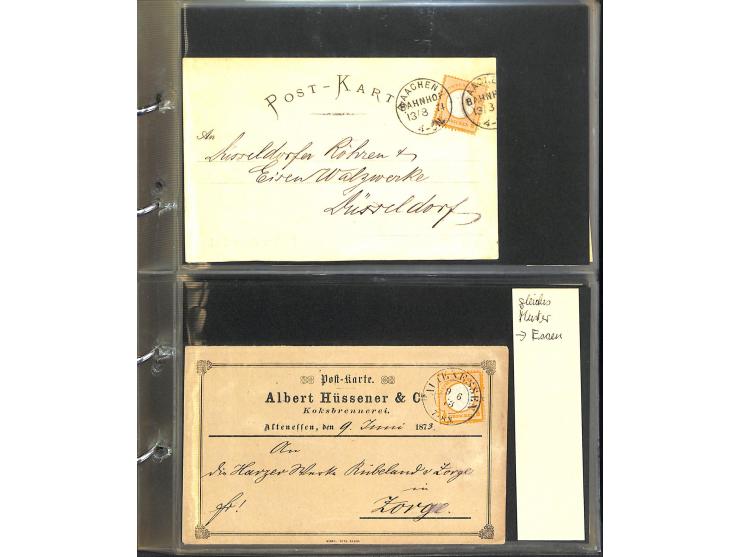 POST-KARTE
AACHEN
BAHNHOF
13/3
4-5N.
AACHEN
BAHNH
13/3
4-
An
Düsseldorfer Röhren &
Eisen Walzwerke
Düsseldorf
gleiches
Muster
→ Essen
Post-Karte.
Albert Hüssener & C
Koksbrennerei.
Altenessen, den 9. Juni 1873.
ALTENESSEN
9 6
An
die Harzer Werke Rübeland & Zorge
in
fr! Zorge.